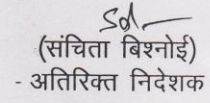 Sd/-
(संचिता बिश्नोई)
- अतिरिक्त निदेशक